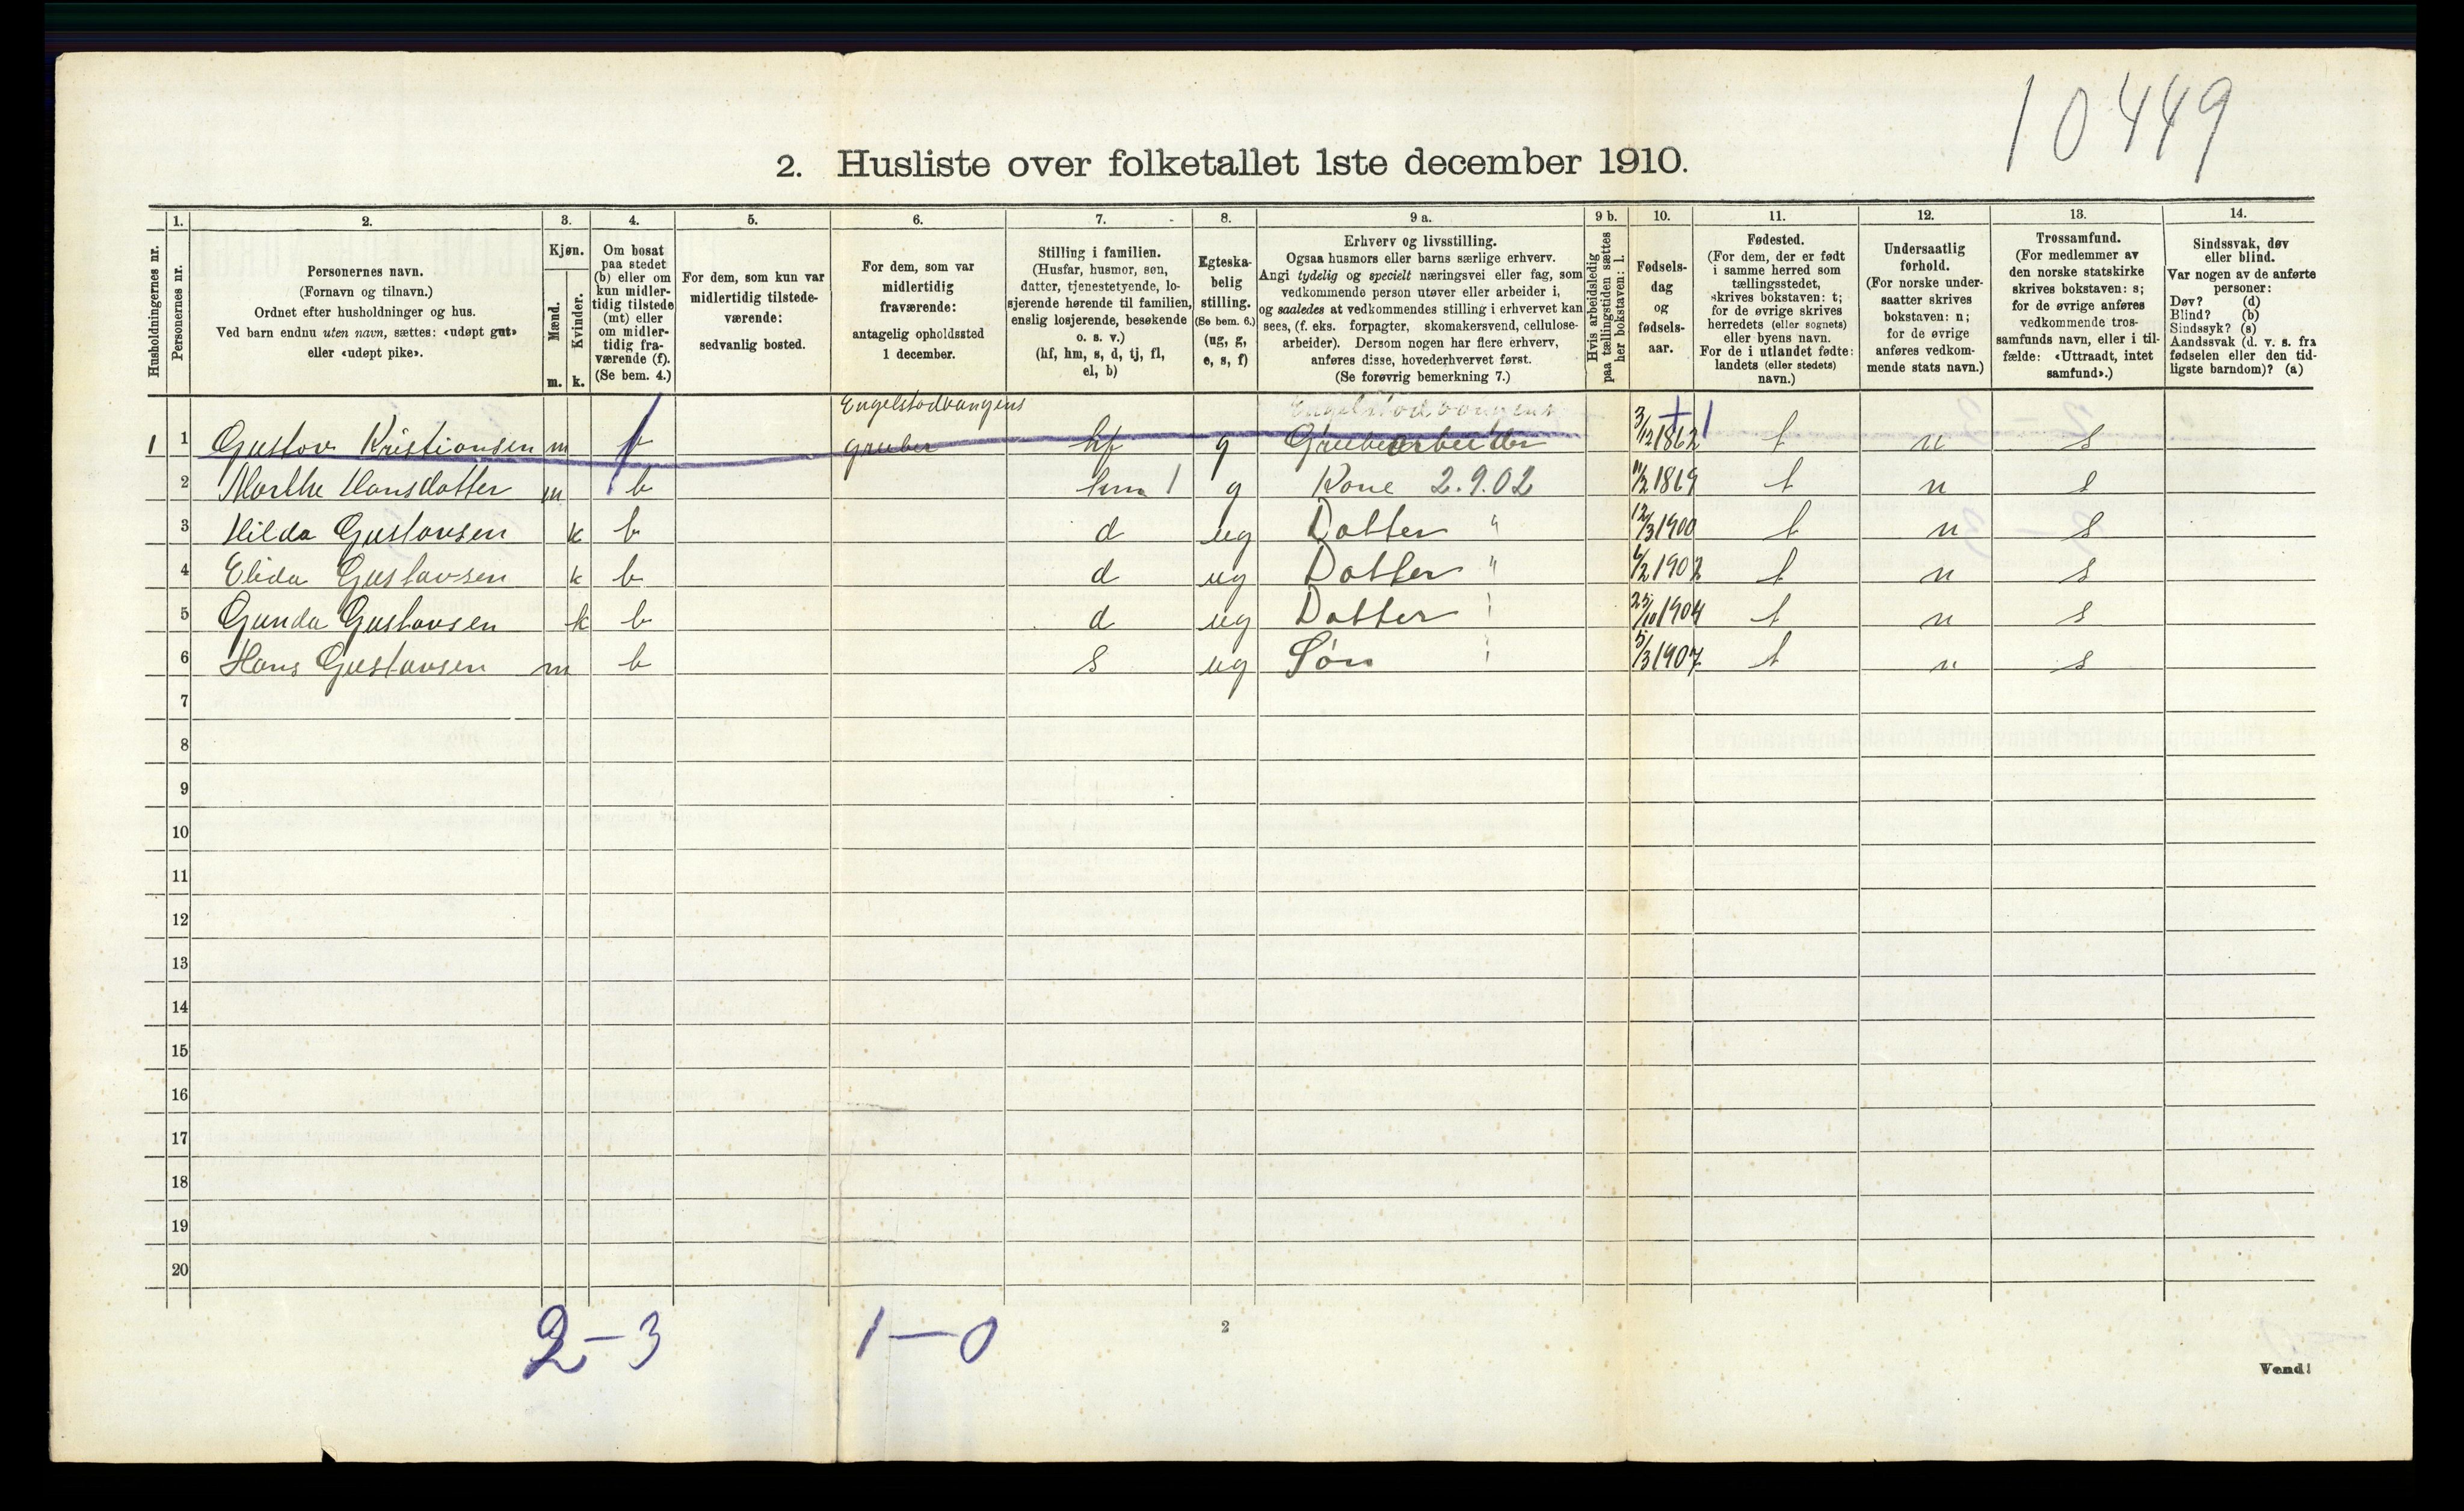 10449
2. Husliste over folketallet 1ste december 1910.
Husholdningernes nr.
1.
Personernes nr.
2.
Personernes navn.
(Fornavn og tilnavn.)
Ordnet efter husholdninger og hus.
Ved barn endnu uten navn, sættes: «udøpt gut»
eller «udøpt pike».
3.
Kjøn.
Mænd.
Kvinder.
m. k.
4.
Om bosat
paa stedet
(b) eller om
kun midler-
tidig tilstede
(mt) eller
om midler-
tidig fra-
værende (f).
(Se bem. 4.)
5.
For dem, som kun var
midlertidig tilstede-
værende:
sedvanlig bosted.
6.
For dem, som var
midlertidig
fraværende:
antagelig opholdssted
1 december.
7.
Stilling i familien.
(Husfar, husmor, søn,
datter, tjenestetyende, lo-
sjerende hørende til familien,
enslig losjerende, besøkende
o. s. v.)
(hf, hm, s, d, tj, fl,
el, b)
8.
Egteska-
belig
stilling.
(Se bem. 6.)
(ug, g,
e, s, f)
9 a.
Erhverv og livsstilling.
Ogsaa husmors eller barns særlige erhverv.
Angi tydelig og specielt næringsvei eller fag, som
vedkommende person utøver eller arbeider i,
og saaledes at vedkommendes stilling i erhvervet kan
sees, (f. eks. forpagter, skomakersvend, cellulose-
arbeider). Dersom nogen har flere erhverv,
anføres disse, hovederhvervet først.
(Se forøvrig bemerkning 7.)
9 b.
Hvis arbeidsledig
paa tællingstiden sættes
her bokstaven: l.
10.
Fødsels-
dag
og
fødsels-
aar.
11.
Fødested.
(For dem, der er født
i samme herred som
tællingsstedet,
skrives bokstaven: t;
for de øvrige skrives
herredets (eller sognets)
eller byens navn.
For de i utlandet fødte:
landets (eller stedets)
navn.)
12.
Undersaatlig
forhold.
(For norske under-
saatter skrives
bokstaven: n;
for de øvrige
anføres vedkom-
mende stats navn.)
13.
Trossamfund.
(For medlemmer av
den norske statskirke
skrives bokstaven: s;
for de øvrige anføres
vedkommende tros-
samfunds navn, eller i til-
fælde: «Uttraadt, intet
samfund».)
14.
Sindssvak, døv
eller blind.
Var nogen av de anførte
personer:
Døv? (d)
Blind? (b)
Sindssyk? (s)
Aandssvak (d. v. s. fra
fødselen eller den tid-
ligste barndom)? (a)
Engelstadvangens Engelstadvangens
1 1 Gustav Kristiansen m gruber hf g Grubearbeider 3/12 1862 t n s
2 Marthe Hansdatter m b hm 1 g Kone 2.9.02 11/2 1869 t n s
3 Hilda Gustavsen k b d ug Datter " 12/3 1900 t n s
4 Elida Gustavsen k b d ug Datter " 6/2 1902 t n s
5 Gunda Gustavsen k b d ug Datter " 25/10 1904 t n s
6 Hans Gustavsen m b s ug Søn " 5/3 1907 t n s
7
8
9
10
11
12
13
14
15
16
17
18
19
20
2-3 1-0
2
Vend!